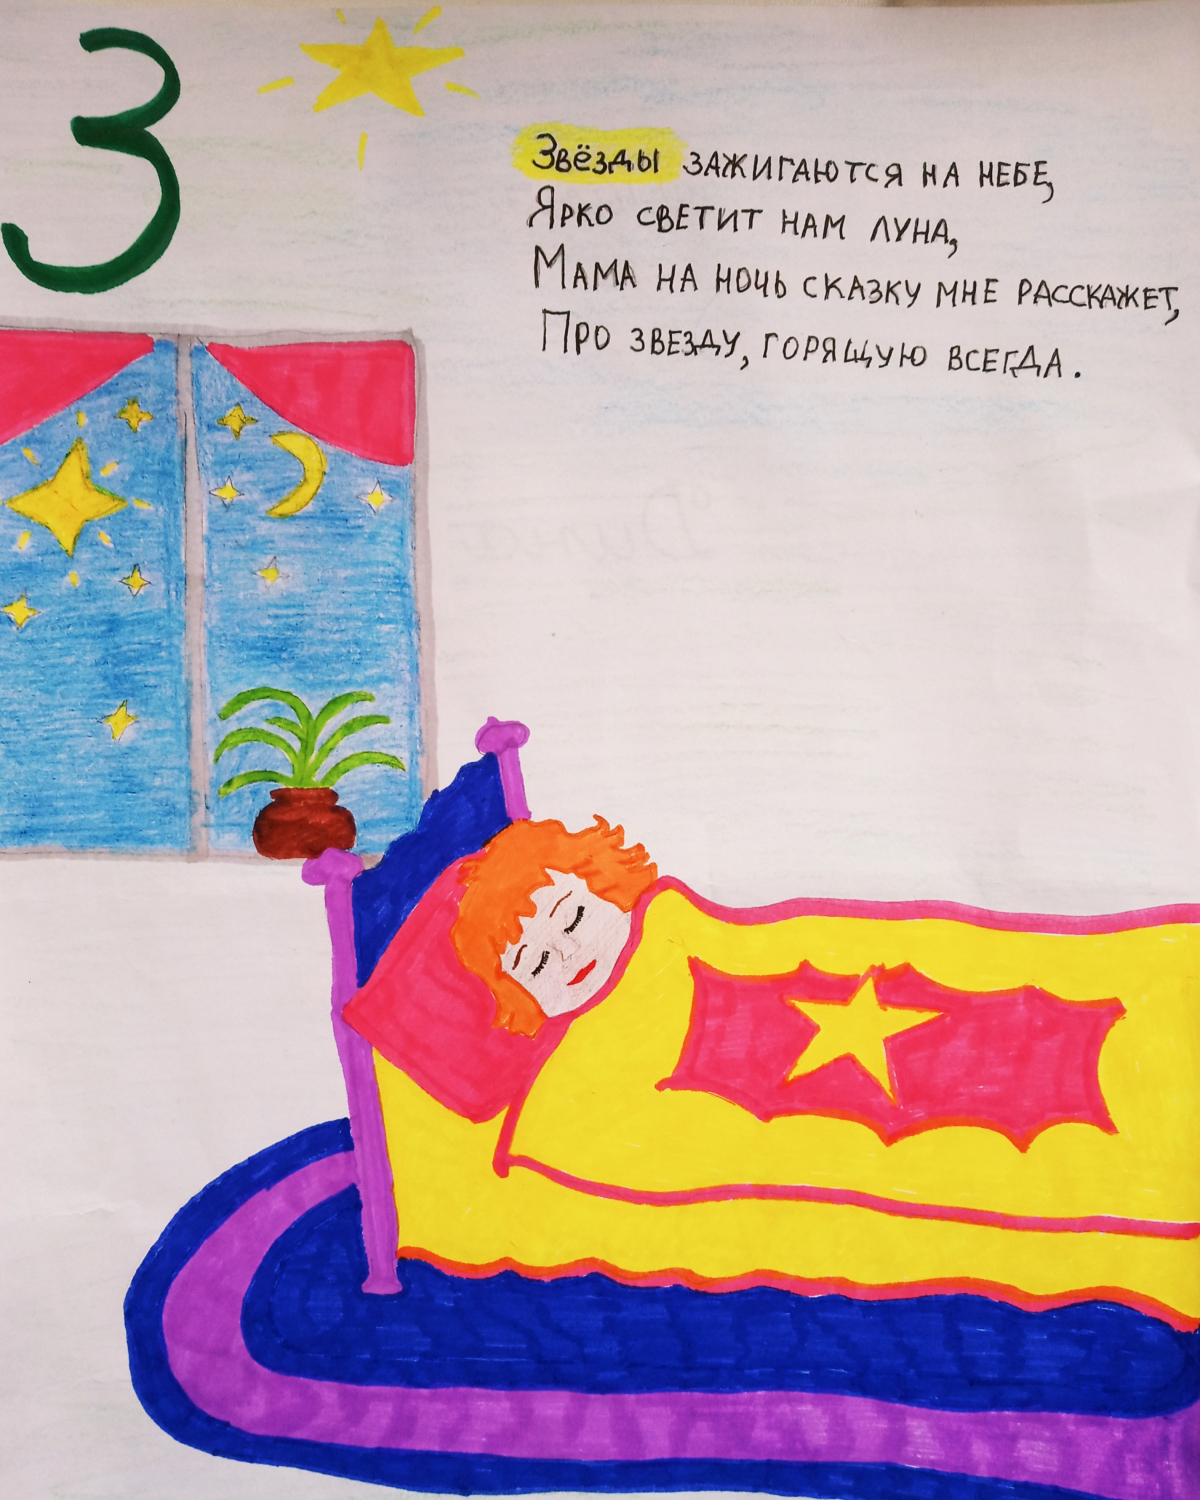 З
Звёзды зажигаются на небе,
Ярко светит нам луна,
Мама на ночь сказку мне расскажет,
Про звезду, горящую всегда.